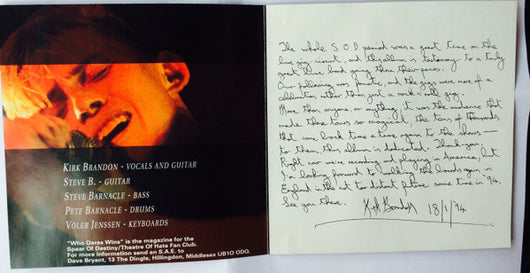 KIRK BRANDON - VOCALS AND GUITAR
STEVE B. - GUITAR
STEVE BARNACLE - BASS
PETE BARNACLE - DRUMS
VOLER JENSSEN - KEYBOARDS
"Who Dares Wins" is the magazine for the
Spear Of Destiny/Theatre Of Hate Fan Club.
For more information send an S.A.E. to
Dave Bryant, 13 The Dingle, Hillingdon, Middlesex UB10 0DG.
The whole S O D period was a great time on the
live gig circuit, and this album is testamony to a truly
great live band going thru their paces.
Our following was fanatic and the gigs were more of a
celebration rather than just a rock + roll gig.
More than anyone or anything it was the audience that
made these tours so magical, the tens of thousands
that came back time & time again to the shows —
to them this album is dedicated. Thank you.
Right now we're recording and playing in America, but
I'm looking forward to walking the boards again in
England in the not too distant future some time in '94.
See you there.
Kirk Brandon 18/1/94